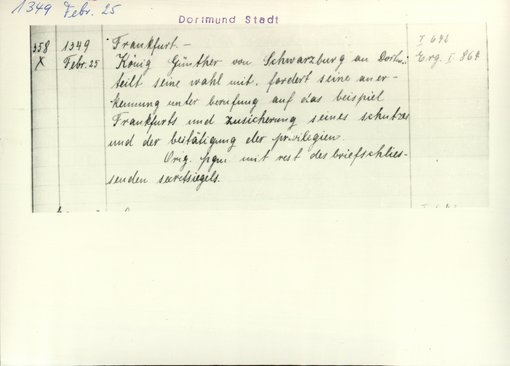 1349 Febr. 25
Dortmund Stadt
358 1349 Frankfurt.- I 646
X Febr. 25 König Günther von Schwarzburg an Dortm.: Erg. I 864
teilt seine wahl mit. fordert seine aner-
kennung unter berufung auf das beispiel
Frankfurts und zusicherung seines schutzes
und der bestätigung der privilegien.
Orig. pgm. mit rest des briefschlies-
senden secretsiegels.